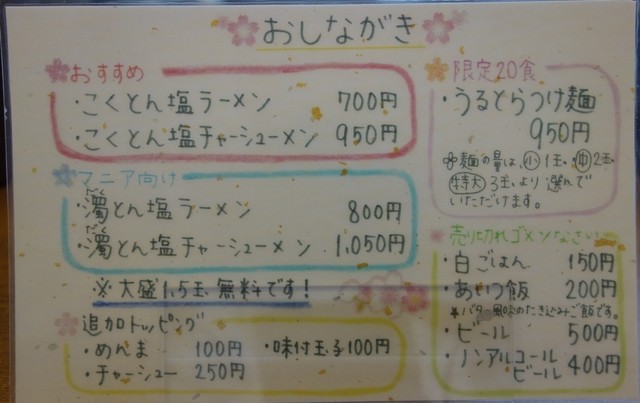 おしながき
おすすめ
・こくとん塩ラーメン 700円
・こくとん塩チャーシューメン 950円
マニア向け
・濁とん塩ラーメン 800円
だく
・濁とん塩チャーシューメン 1,050円
だく
※大盛1.5玉無料です!
追加トッピング
・めんま 100円 ・味付玉子100円
・チャーシュー 250円
限定20食
・うるとらつけ麺
950円
麺の量は、小1玉、中2玉、
特大3玉、より選んで
いただけます。
売り切れゴメンなさい!
・白ごはん 150円
・あいつ飯 200円
★バター風味のたき込みご飯です。
・ビール 500円
・ノンアルコール
ビール 400円